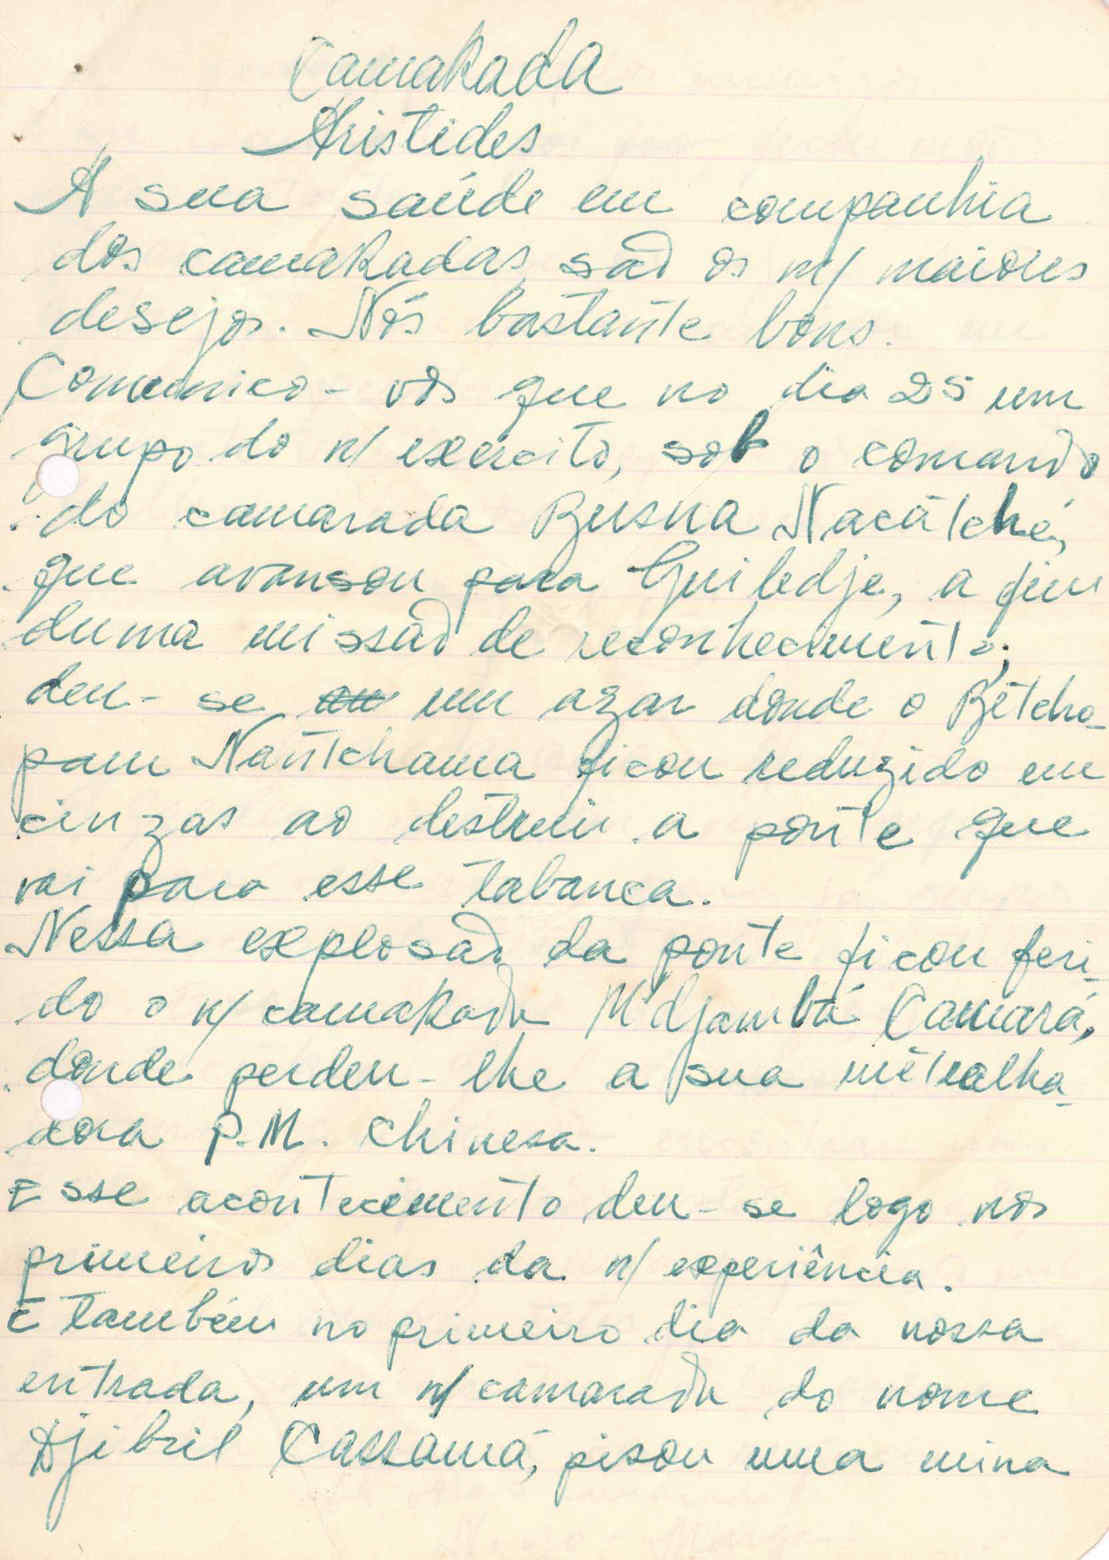 Camarada
Aristides
A sua saúde em companhia
dos camaradas são os n/ maiores
desejos. Nós bastante bons.
Comunico-vos que no dia 25 um
grupo do n/ exército, sob o comando
do camarada Busna Nacátché,
que avansou para Guiledje, a fim
duma missão de reconhecimento;
deu-se um azar donde o Bétcha-
pam Nantchama ficou reduzido em
cinzas ao destruir a ponte que
vai para esse tabanca.
Nessa explosão da ponte ficou feri-
do o n/ camarada M'djambá Camará,
donde perdeu-lhe a sua métralha-
dora P.M. chinesa.
Esse acontecimento deu-se logo nos
primeiros dias da n/ experiência.
E também no primeiro dia da nossa
entrada, um n/ camarada do nome
Djibril Cassamá, pisou uma mina